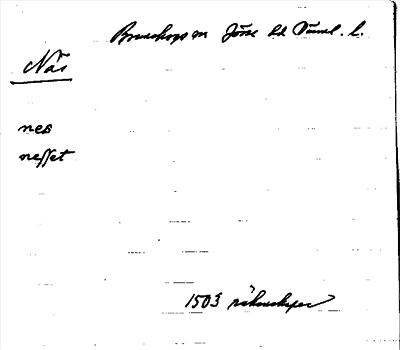 Brunskogs sn Jösse hd Värml. l.
Näs
nes
nesset
1503 räkenskaper